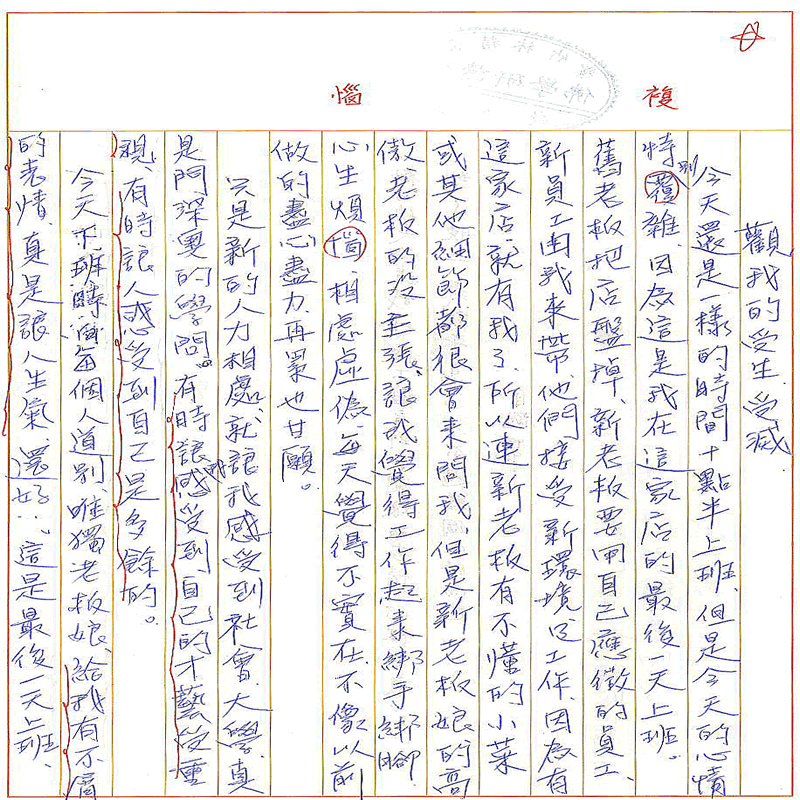 複
惱
觀我的受生、受滅
今天還是一樣的時間十點半上班、但是今天的心情
特別覆雜、因為這是我在這家店的最後一天上班。
舊老板把店盤掉、新老板要用自己應徵的員工、
新員工由我來帶、他們接受新環境及工作、因為有
這家店、就有我了、所以連新老板有不懂的小菜
或其他細節都很會來問我、但是新老板娘的高
傲、老板的没主張、讓我覺得工作起來綁手綁腳、
心生煩惱、相處虛偽、每天覺得不實在、不像以前
做的盡心盡力、再累也甘願。
只是新的人力相處、就讓我感受到社會大學、真
是門深奧的學問。有時讓我感受到自己的才藝受重
視、有時讓人感受到自己是多餘的。
今天下班時、每個人道別、唯獨老板娘、給我有不屑
的表情、真是讓人生氣、還好...、這是最後一天上班、